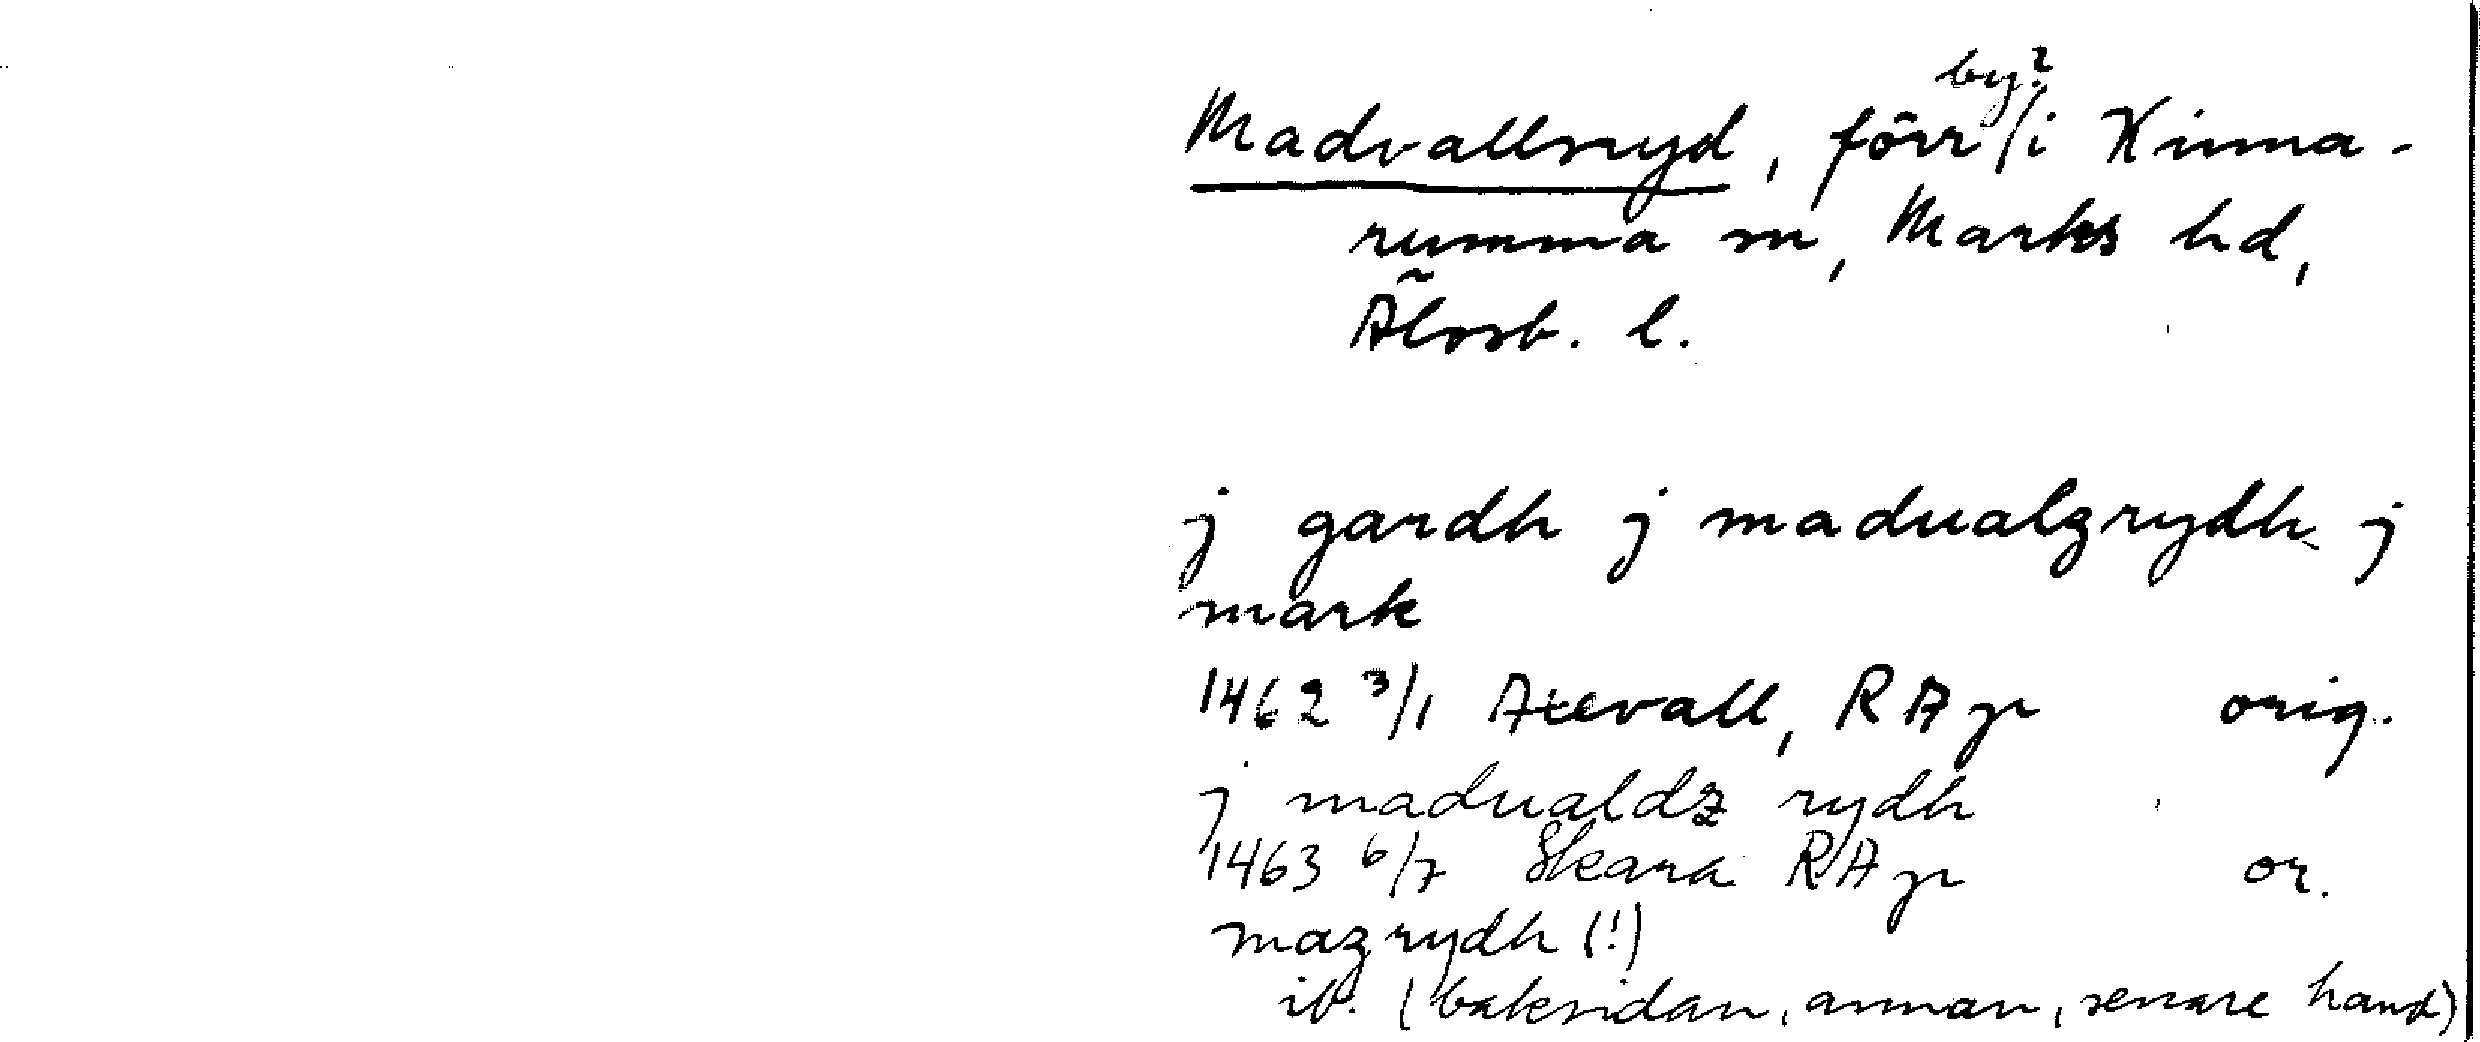 Madvallsryd, förr by? i Kinna-
rumma sn, Marks hd,
Älvsb. l.
j gardh j madualzrydh j
mark
1462 3/1 Axevall, RAp orig.
j madualdz rydh
1463 6/7 Skara RAp or.
mazrydh (!)
ib. (baksidan, annan, senare hand)